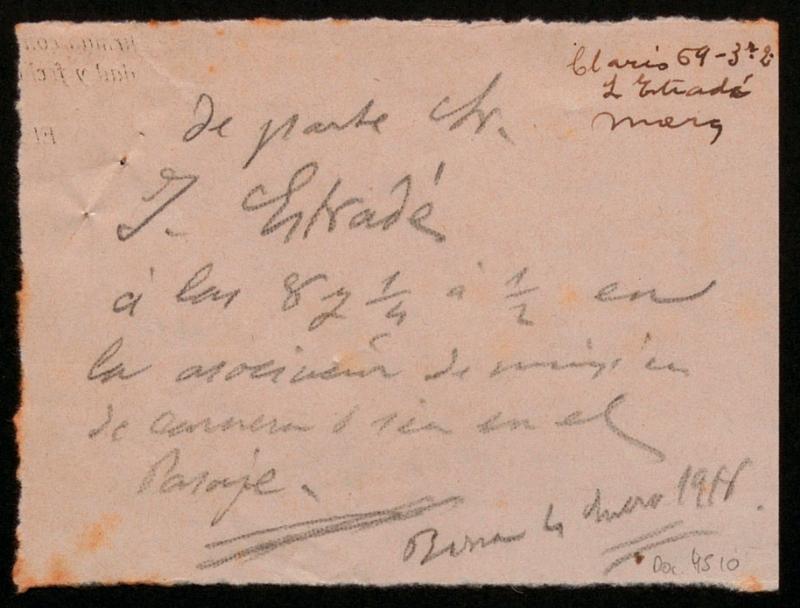 Claris 69-3º 2ª
J. Estradé
de parte Sr.
J. Estradé
á las 8 y 1/4 á 1/2 en
la asociación de música
de camera ó sea en el
Pasaje.
Bna 4 Enero 1918.
Doc. 4510